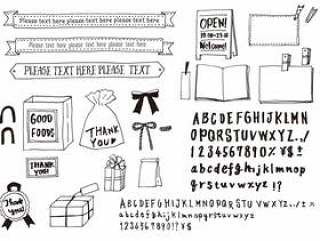 Please text here please text here please text here
Please text here please text here please text here
PLEASE TEXT HERE PLEASE TEXT HERE
OPEN!
Welcome!
GOOD
FOODS
THANK
YOU
THANK
YOU!
Thank
you!
ABCDEFGHIJKLMN
OPQRSTUVWXYZ.,/
1234567890%¥$±
abcdefghijklmnop
qrstuvwxyz!?
ABCDEFGHIJKLMNOPQRSTUVWXYZ.,/±
abcdefghijklmnopqrstuvwxyz
1234567890%¥$!?